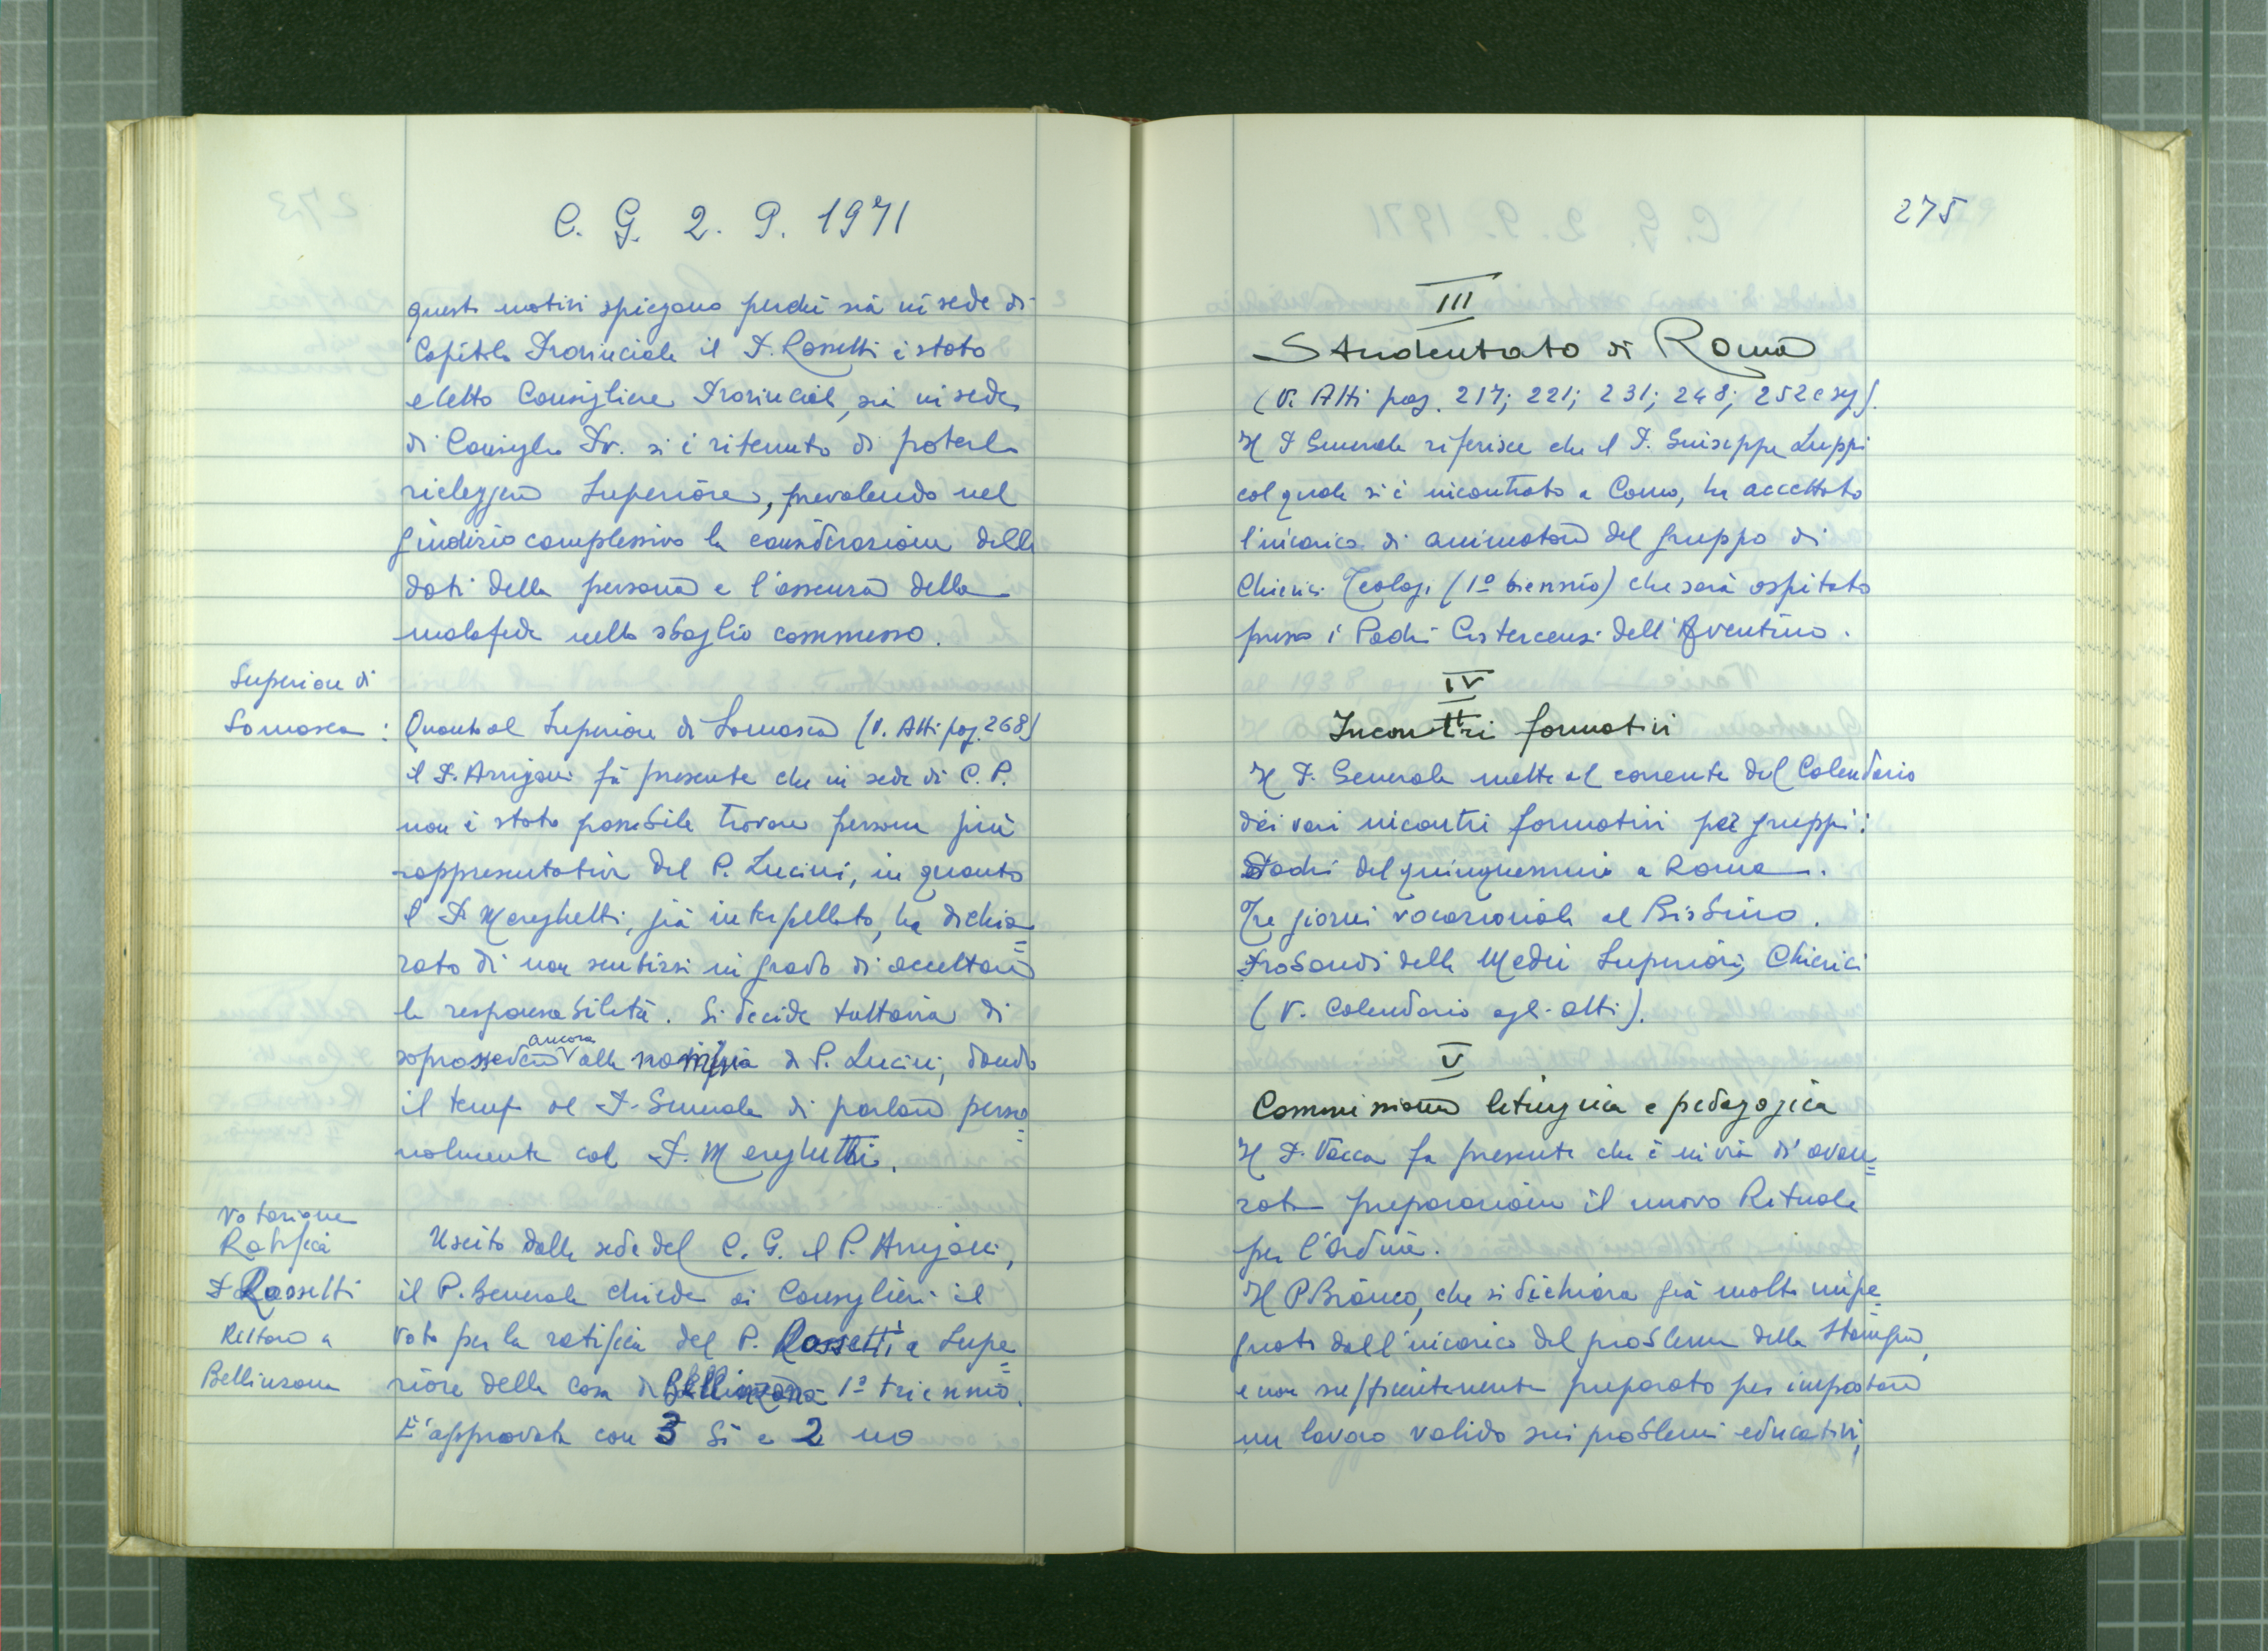 C. G. 2. 9. 1971
questi motivi spiegano perché sia in sede di
Capitolo Provinciale il P. Rossetti è stato
eletto Consigliere Provinciale, sia in sede
di Consiglio Pr. si è ritenuto di poterlo
rieleggere Superiore, prevalendo nel
giudizio complessivo la considerazione delle
doti della persona e l'assenza della
malafede nello sbaglio commesso.
Superiore di
Somasca : Quanto al Superiore di Somasca (V. Atti pag. 268)
il P. Arrigoni fa presente che in sede di C. P.
non è stato possibile trovare persona più
rappresentativa del P. Lucini, in quanto
il P. Mereghetti, già interpellato, ha dichia=
rato di non sentirsi in grado di accettare
la responsabilità. Si decide tuttavia di
soprassedere ancora alla nomina di P. Lucini, dando
il tempo al P. Generale di parlare perso=
nalmente col P. Mereghetti.
Votazione
Ratifica
P. Rossetti
Rettore a
Bellinzona
Uscito dalla sede del C. G. il P. Arrigoni,
il P. Generale chiede ai Consiglieri il
voto per la ratifica del P. Rossetti a Supe=
riore della casa di Bellinzona 1º triennio.
E' approvata con 3 Si e 2 no
275
III
Studentato di Roma
(V. Atti pag. 217; 221; 231; 248; 252 e sg).
Il P. Generale riferisce che il P. Giuseppe Luppi
col quale si è incontrato a Como, ha accettato
l'incarico di animatore del gruppo di
Chierici Teologi (1º biennio) che sarà ospitato
presso i Padri Cistercensi dell'Aventino.
IV
Incontri formativi
Il P. Generale mette al corrente del Calendario
dei vari incontri formativi per gruppi:
Padri del quinquennio a Roma.
Tre giorni vocazionale al Bisbino.
Probandi delle Medie Superiori, Chierici
(V. Calendario agli atti).
V
Commissione liturgica e pedagogica
Il P. Vacca fa presente che è in via di avan=
zata preparazione il nuovo Rituale
per l'Ordine.
Il P. Bianco, che si dichiara già molto impe=
gnato dall'incarico del problema della Stampa,
e non sufficientemente preparato per impostare
un lavoro valido sui problemi educativi,